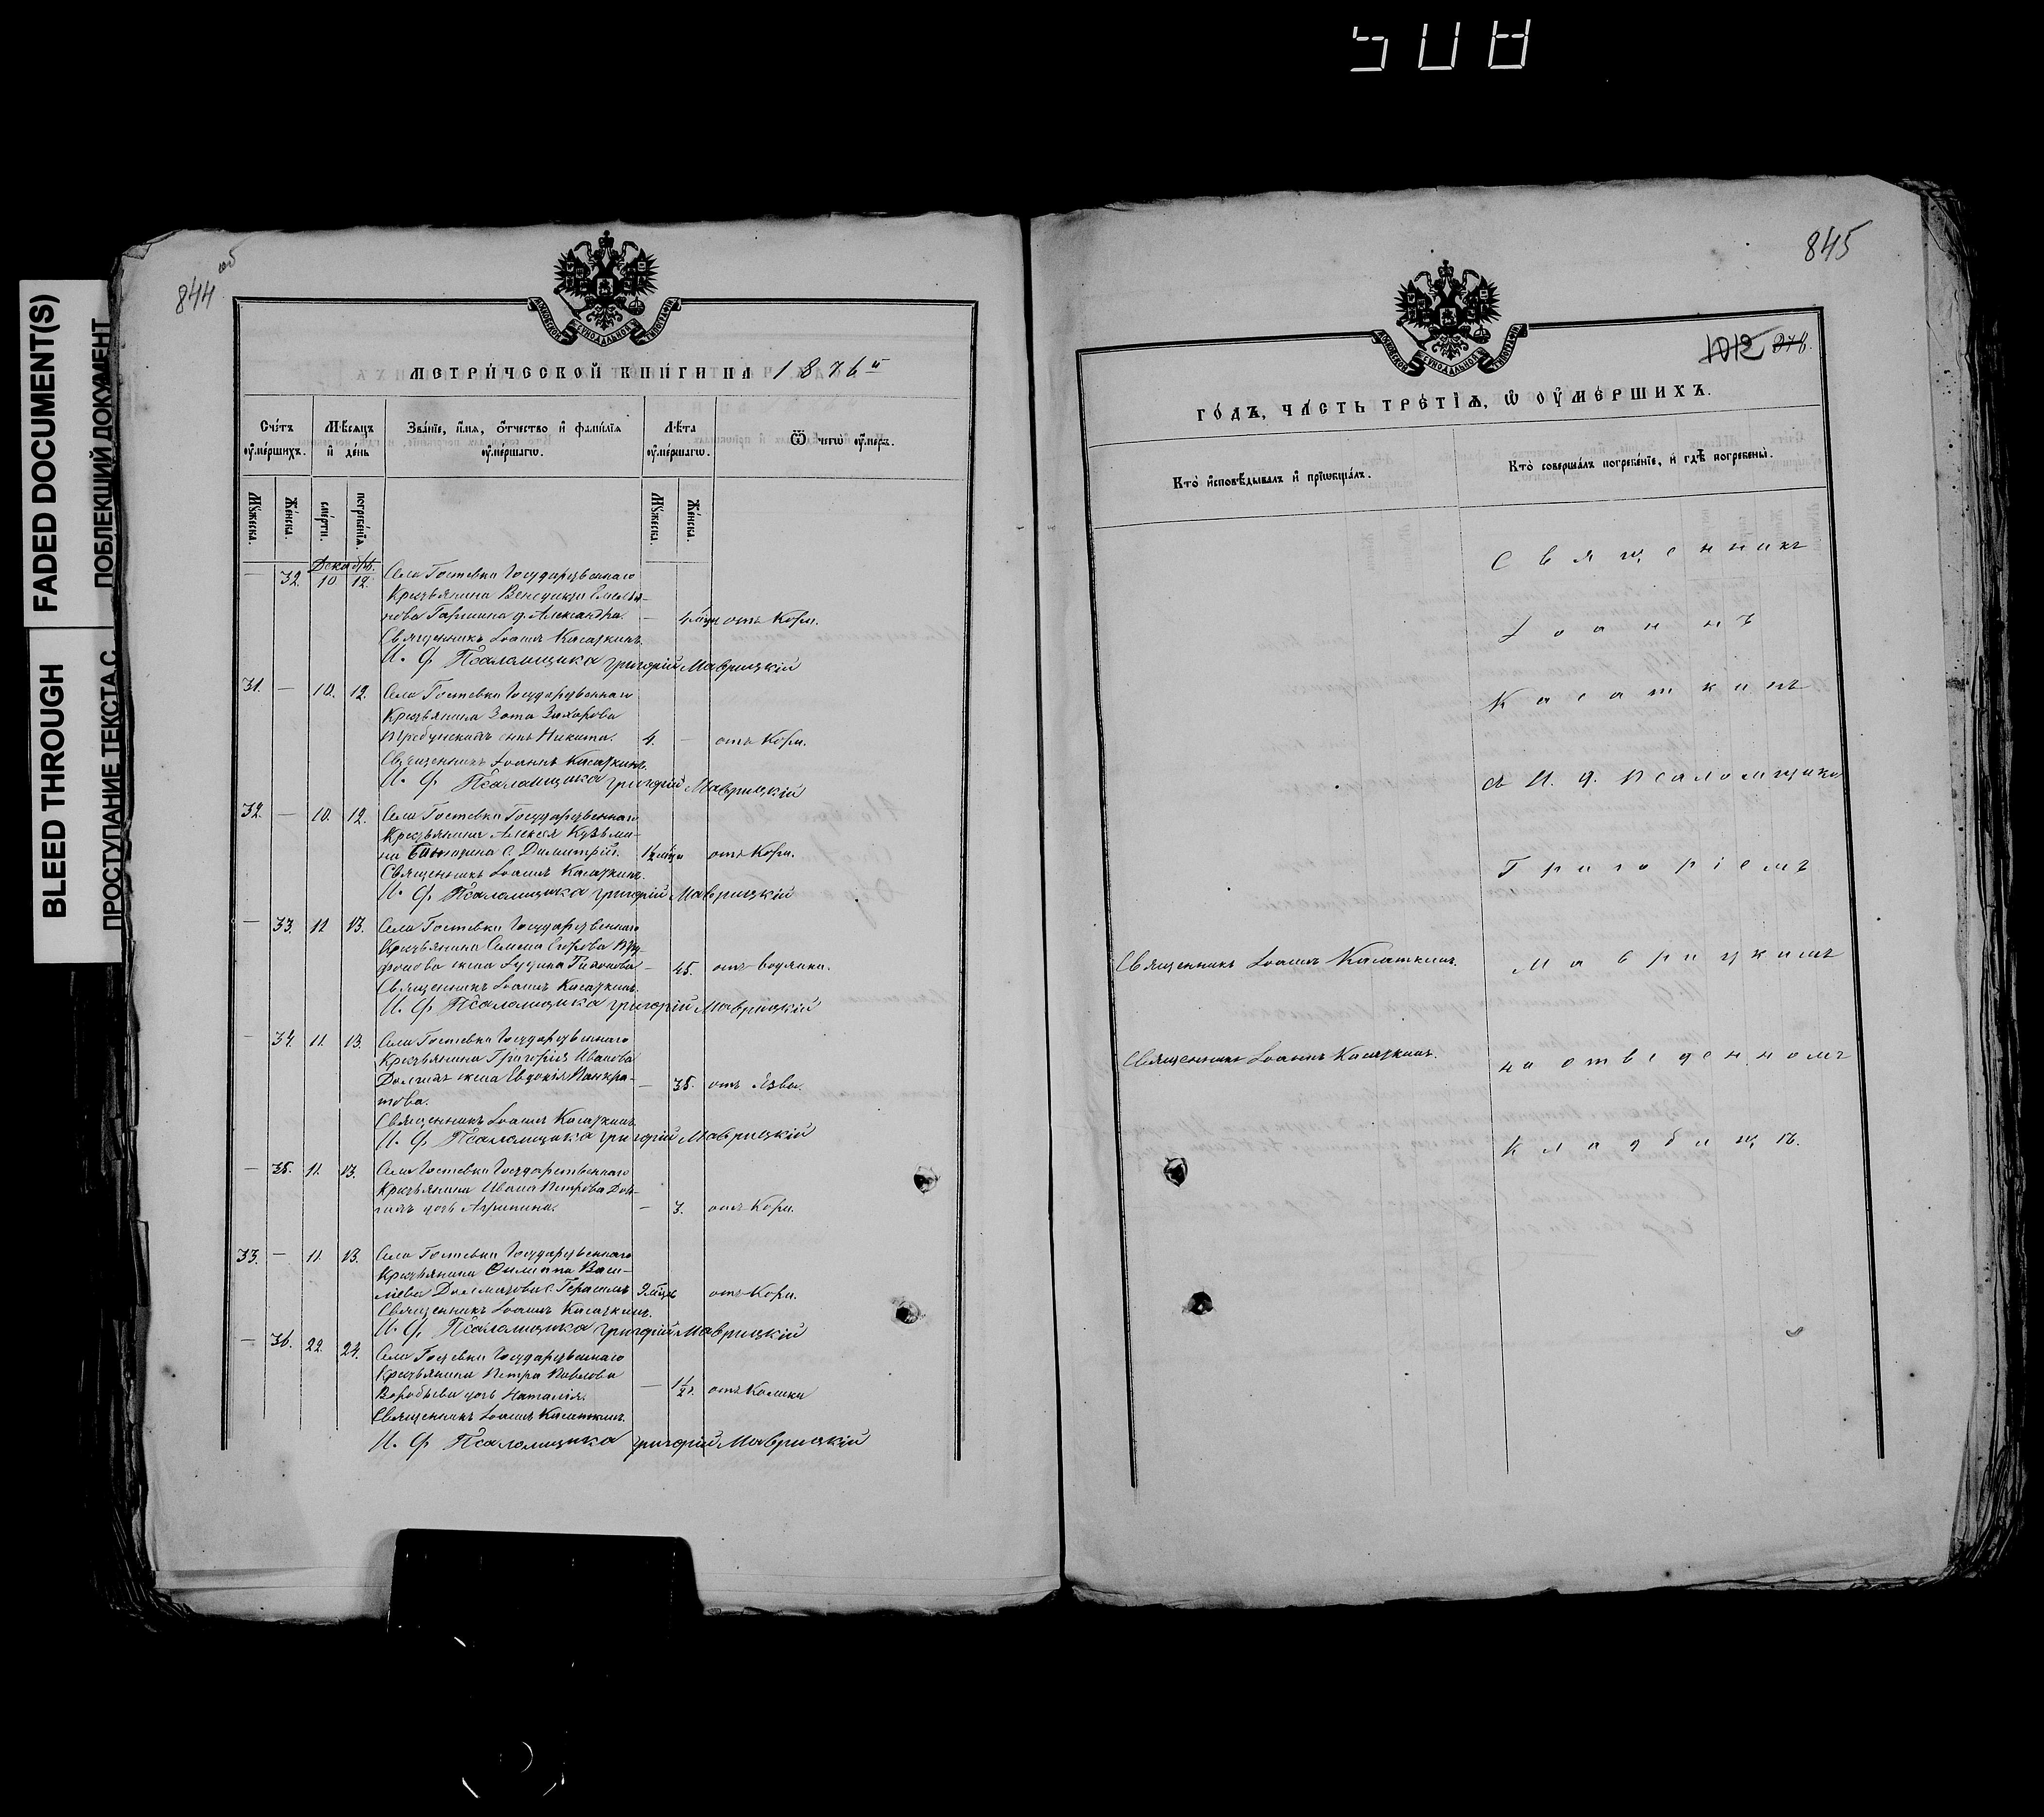 FADED DOCUMENT(S)
ПОБЛЕКЩИЙ ДОКУМЕНТ
BLEED THROUGH
ПРОСТУПАНИЕ ТЕКСТА С
844 об
МЕТРИЧЕСКОЙ КНИГИ НА 1876й
Счетъ оумершихъ.
Мѣсяцъ и день
Званіе, имя, отчество и фамилія оумершагѡ.
Лѣта оумершагѡ.
Ѿ чегѡ оумеръ.
Мужеска.
Женска.
смерти.
погребенія.
Мужеска.
Женска.
Декабрь.
— 32. 10 12. Села Гостевки Государственнаго
Крестьянина
Гаршина д. Александра. — отъ Кори.
Священникъ Іоаннъ Касаткинъ.
И. Ф. Псаломщика Григорій Маврицкій
31. — 10. 12. Села Гостевки Государственнаго
Крестьянина Зота Захарова
сынъ Никита. 4. — отъ Кори.
Священникъ Іоаннъ Касаткинъ.
И. Ф. Псаломщика Григорій Маврицкій
32. — 10. 12. Села Гостевки Государственнаго
Крестьянина Алексѣя Кузьми-
на с. Димитрій. отъ Кори.
Священникъ Іоаннъ Касаткинъ.
И. Ф. Псаломщика Григорій Маврицкій
— 33. 11 13. Села Гостевки Государственнаго
Крестьянина
жена Тихонова — 45. отъ водянки.
Священникъ Іоаннъ Касаткинъ.
И. Ф. Псаломщика Григорій Маврицкій
— 34. 11. 13. Села Гостевки Государственнаго
Крестьянина Григорія Иванова
Долгихъ жена Евдокія Панкра-
това. — 35. отъ Язвы.
Священникъ Іоаннъ Касаткинъ.
И. Ф. Псаломщика Григорій Маврицкій
— 35. 11. 13. Села Гостевки Государственнаго
Крестьянина Ивана Петрова Дол-
гихъ дочь Агрипина. — 3. отъ Кори.
33. — 11. 13. Села Гостевки Государственнаго
Крестьянина Филипа Васи-
льева с. Герасимъ отъ Кори.
Священникъ Іоаннъ Касаткинъ.
И. Ф. Псаломщика Григорій Маврицкій
— 36. 22. 24. Села Гостевки Государственнаго
Крестьянина Петра Павлова
Воробьева дочь Наталія. — 1½ г. отъ Колики
Священникъ Іоаннъ Касаткинъ.
И. Ф. Псаломщика Григорій Маврицкій
845
1012 378.
ГОДЪ, ЧАСТЬ ТРЕТІЯ, Ѡ ОУМЕРШИХЪ.
Кто исповѣдывалъ и пріѡбщалъ.
Кто совершалъ погребеніе, и гдѣ погребены.
Священникъ
Іоаннъ
Касаткинъ
съ И. Ф. Псаломщика
Григоріемъ
Священникъ Іоаннъ Касаткинъ.
Маврицкимъ
Священникъ Іоаннъ Касаткинъ.
на отведенномъ
Кладбищѣ.